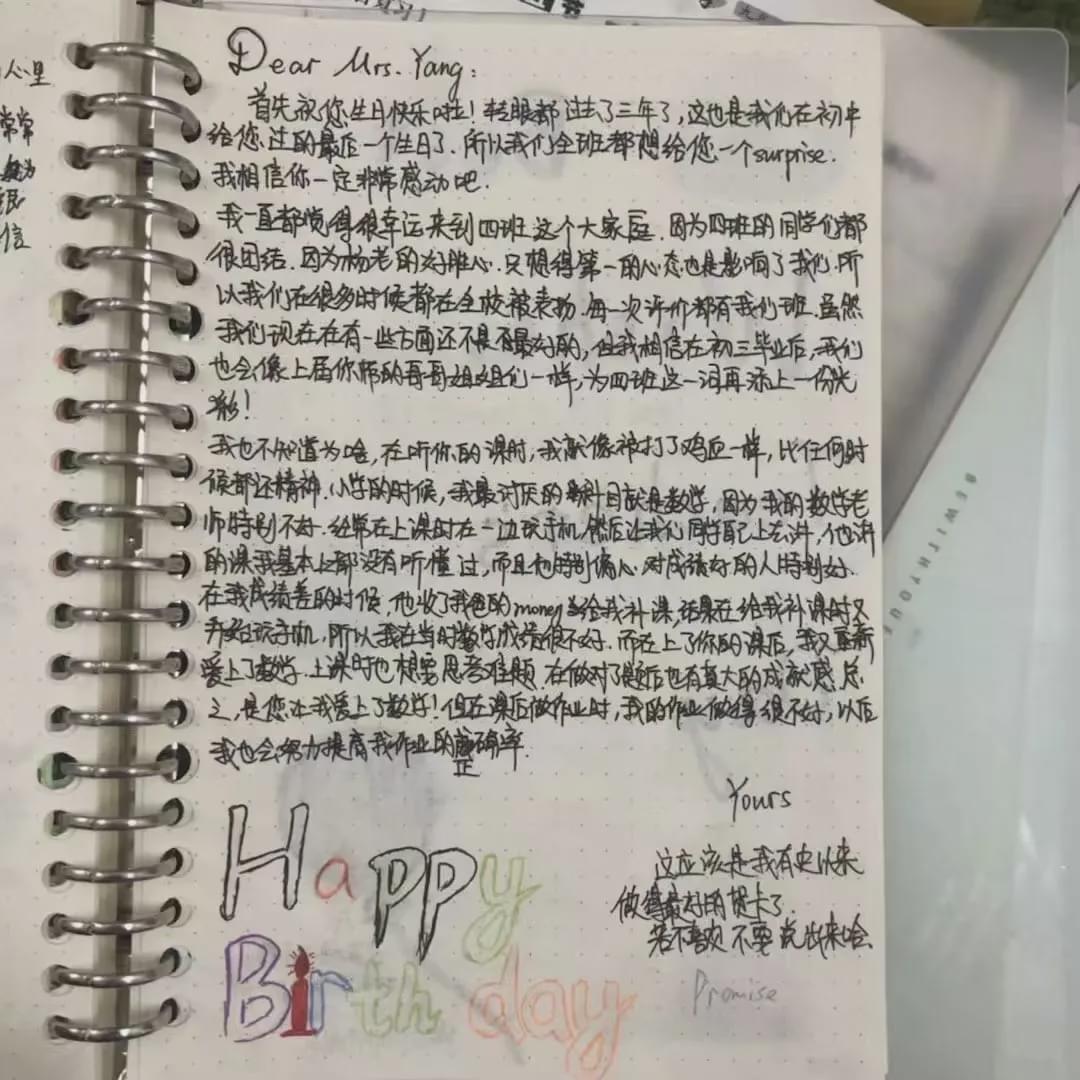 人心里
常常
很
信
Dear Mrs. Yang:
首先祝您生日快乐啦！转眼都过去了三年了，这也是我们在初中
给您过的最后一个生日了．所以我们全班都想给您一个surprise.
我相信你一定非常感动吧．
我一直都觉得很幸运来到四班这个大家庭．因为四班的同学们都
很团结．因为杨老的好胜心．只想得第一的心态也是影响了我们．所
以我们在很多时候都在全校被表扬．每一次评价都有我们班．虽然
我们现在在有一些方面还不是最好的，但我相信在初三毕业后，我们
也会像上届你带的哥哥姐姐们一样，为四班这一词再添上一份光
彩！
我也不知道为啥，在听你的课时，我就像被打了鸡血一样，比任何时
候都还精神．小学的时候，我最讨厌的科目就是数学，因为我的数学老
师特别不好．经常在上课时在一边玩手机，然后让我们同学自己上去讲，他讲
的课我基本上都没有听懂过，而且他特别偏心．对成绩好的人特别好．
在我成绩差的时候，他收了我爸的money给我补课，结果在给我补课时又
开始玩手机．所以我在当时数学成绩很不好．而在上了你的课后，我又重新
爱上了数学．上课时也想要思考难题．在做对了题后也有莫大的成就感．总
之，是您让我爱上了数学！但在课后做作业时，我的作业做得很不好，以后
我也会努力提高我作业的正确率．
Yours
这应该是我有史以来
做得最好的贺卡了．
若不喜欢不要说出来哈．
Promise
Happy
Birthday
BEWITHYOUR